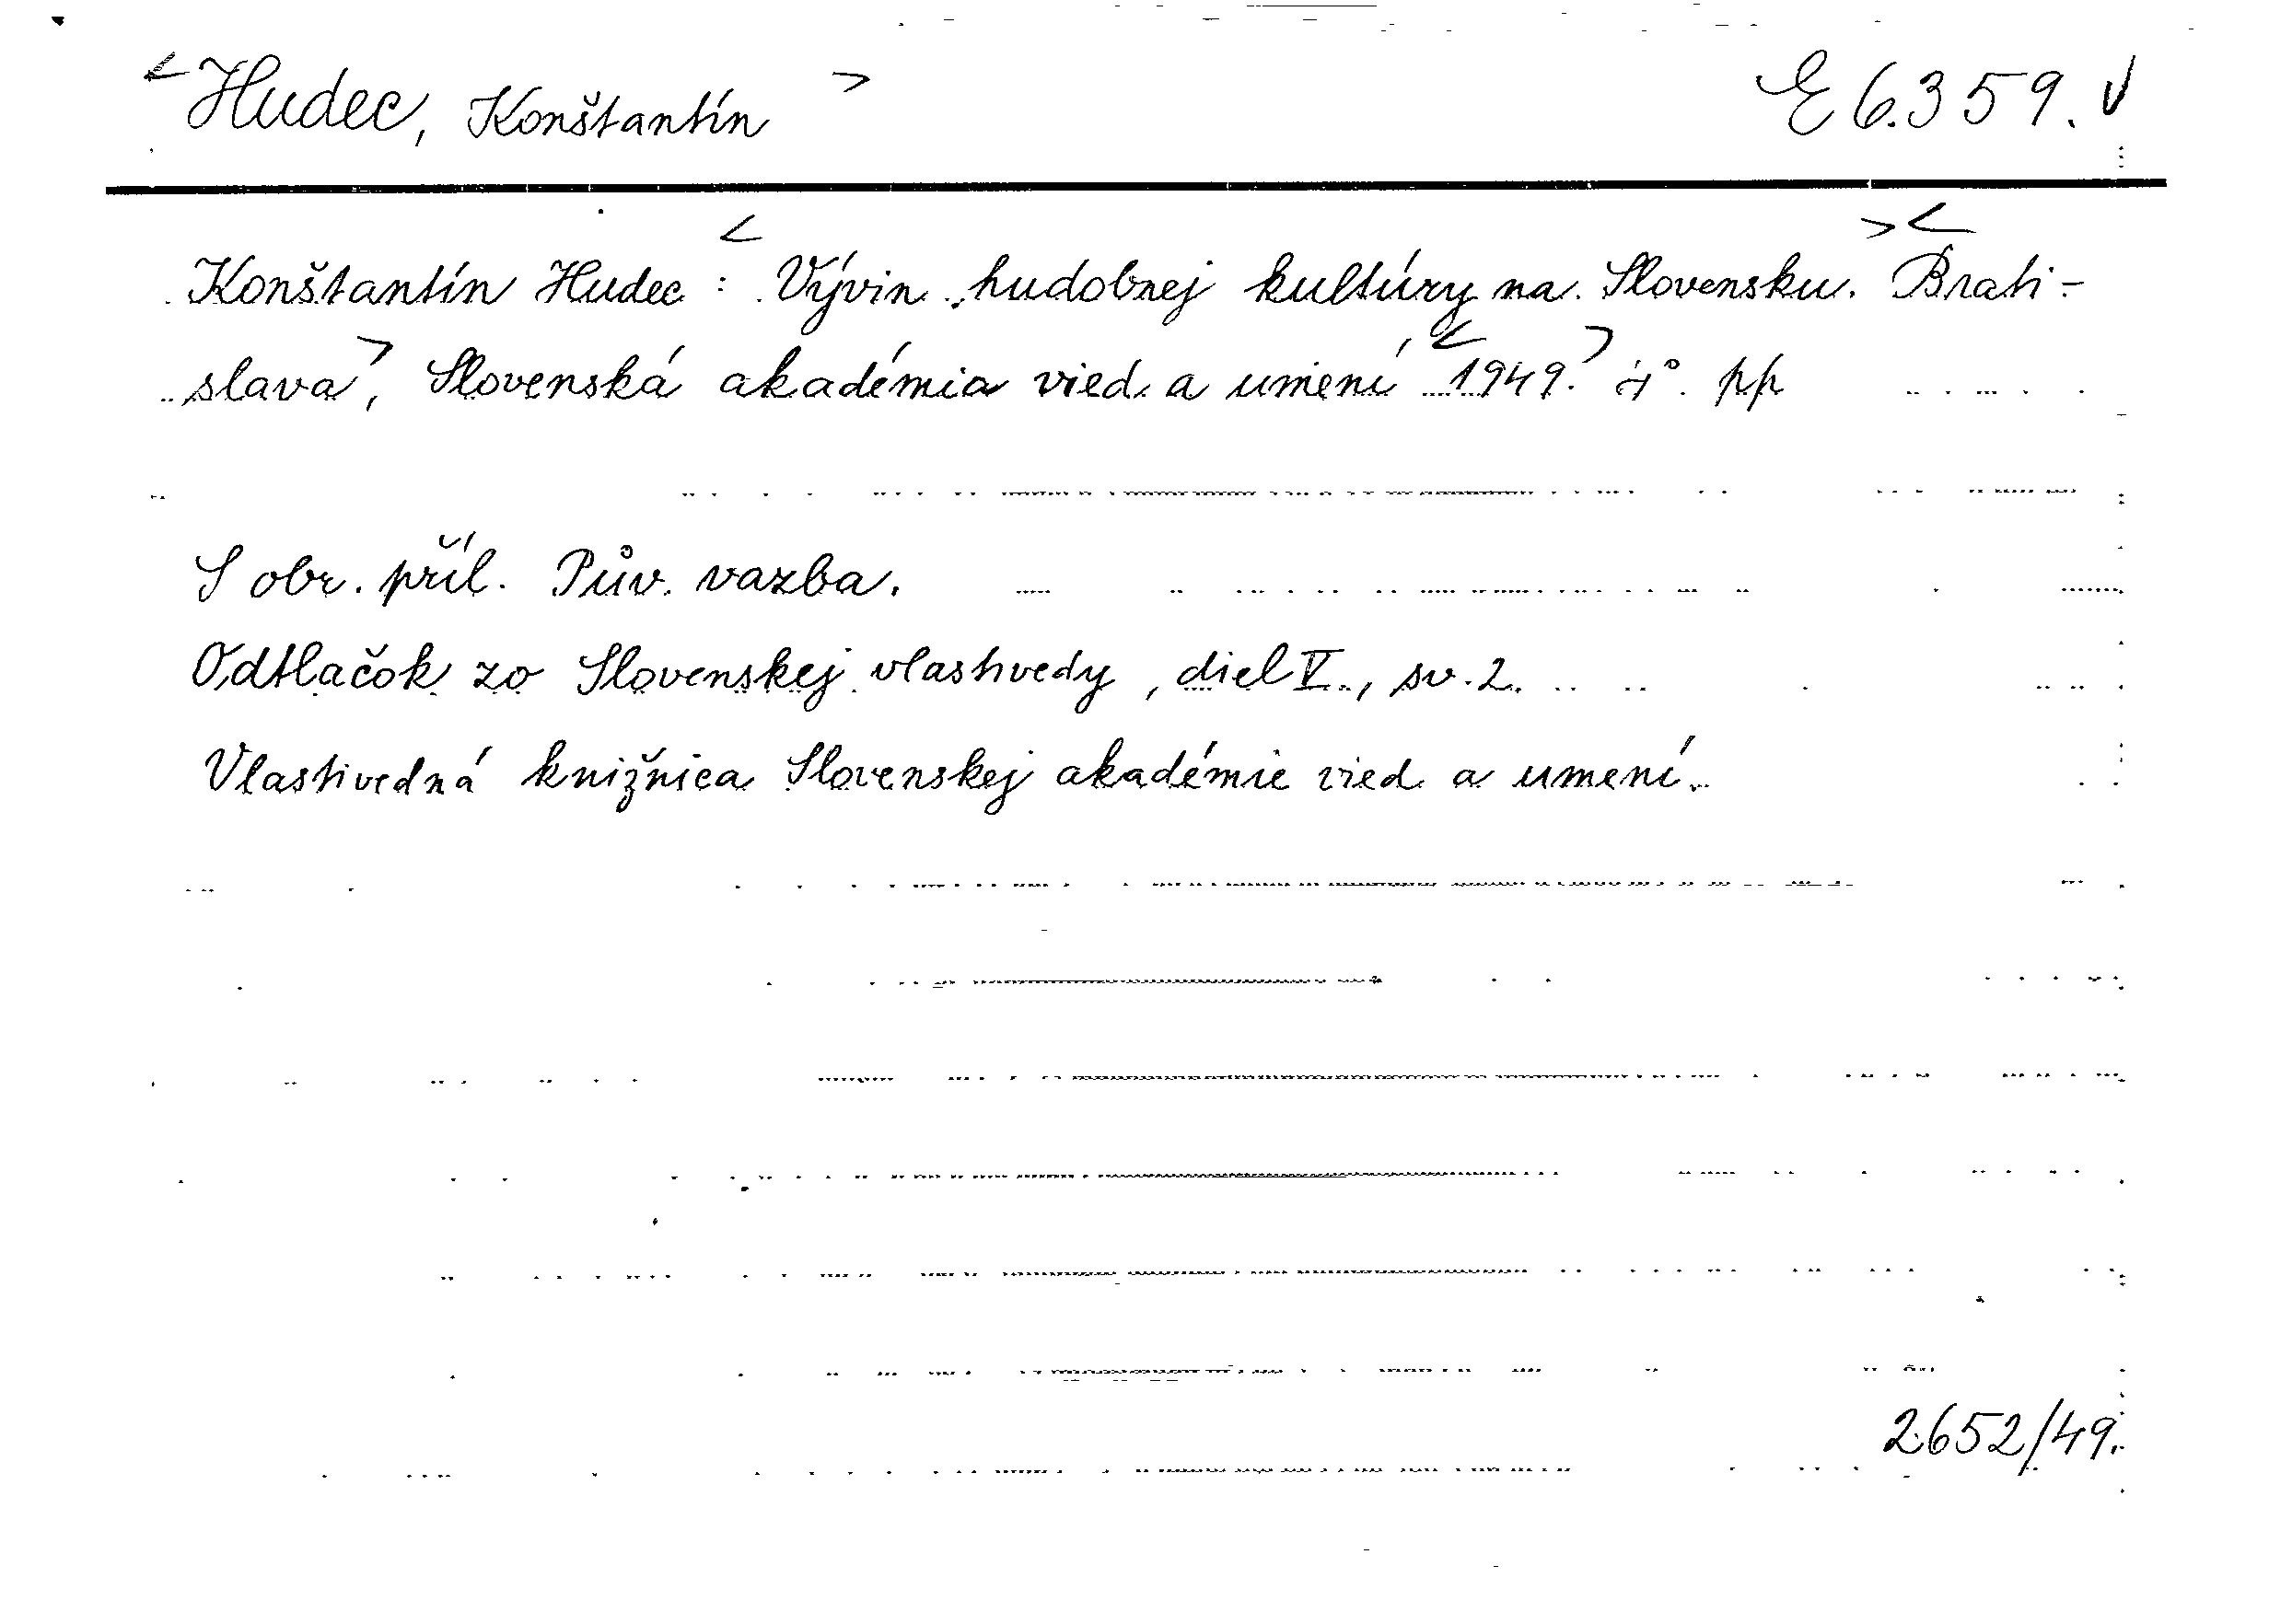 <Hudec, Konštantín> E 6.359. √
Konštantín Hudec : <Vývin hudobnej kultúry na Slovensku.> <Brati-
slava>, Slovenská akadémia vied a umení <1949.> 4°. pp
S obr. příl. Pův. vazba.
Odtlačok zo Slovenskej vlastivedy, diel V., sv. 2.
Vlastivedná knižnica Slovenskej akadémie vied a umení.
2652/49.